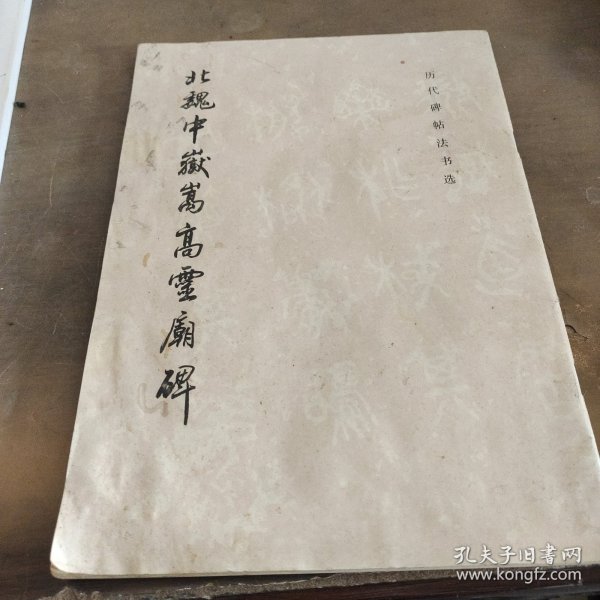 历代碑帖法书选
北魏中嶽嵩高靈廟碑
孔夫子旧书网
www.kongfz.com